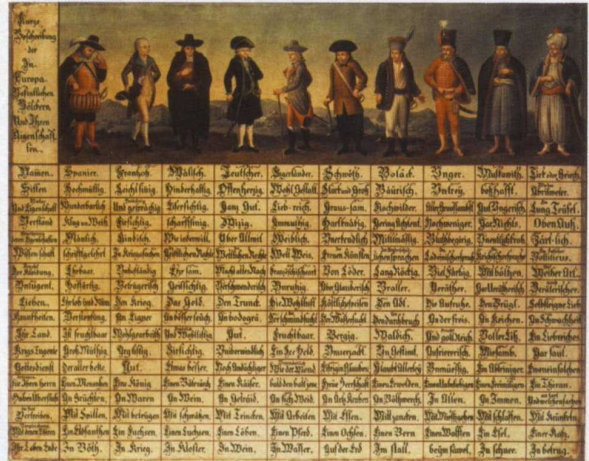 Kurze
Beschreibung
der
In
Europa
Befintlichen
Völckern
Und Ihren
Aigenschaff
ten.
Namen. Spanier. Frantzoß. Wälisch. Teutscher. Engerländer. Schwöth. Boläck. Unger. Muskawith. Tirk oder Griech.
Sitten Hochmüttig. Leichtsinig. Hinderhaltig. Offenherzig. Wohl Gestalt. Starck und Groß Bäurisch. Untrey. boßhafft. Abrilweter.
Und Eigenschaft Wunderbarlich Und gesprächig Eifersichtig. Ganz Gut. Lieb-reich. Graus-sam. Nochwilder. Aller Graussambst Gut Ungerisch. Lung Teufel.
Verstand Klug un Weiß. Firsichtig. Scharffsinig. Wizig. Anmuthig. Hartknätig. Gering Achtent. Nochweniger. Gar Nichts. Oben Auß.
Mänlich. Kindisch. Wie iederwill. Iber Allmit. Weiblich. Unertendlich Mittlmässig. Bluthbegirig. Unentlichkrob. Zärt-lich.
Wissenschaft Schrifftgelehrt In Kriegssachen Geistlichen Rechte Weltlichen Rechte Welt Weis. Freuen Künsten Lateinischersprach Kriechischersprache Bolliticus.
Der Kleidung. Ehrbaar. Unbeständig Ehrsam. Macht alles Nach Frantzeschischeart Von Löder. Lang Röckig. Viel Färbig. Mit bölzen. Weiber Art.
Untugent. Hoffärtig. Betrügerisch Geillsichtig. Verschwenderisch Unruhig. Aber Glauberisch Braller. Veräther. Gar Verätherisch Verätherischer.
Lieben. Ehrlob und Rüm Den Krieg. Das Gold. Den Trunck. Die Wohllust Köstlichespeisen Den Adl. Die Aufruhe. Den Brügl. Selbsteigne Lieb
Krankheiten. Verstopfung. An Eigner An bösser seüch. An bodogrä. Der schwindsucht Der Wassersucht Den durchbruch An der freis. An Keichen. An Schwachheit
Ihr Land. Ist fruchtbaar Wohlgearbeith Und Wohllistig Gut. Fruchtbaar. Bergig. Waldich. Und goldReich. Voller Eiß. Ein Liebreiches
Kriegs Tugente Groß Müthig Arglistig. Firsichtig. Uniberwindlich Ein See Held. Unverzagt. Un Gestimt. Aufrierrerisch. Miesamb. Gar faul.
Gottesdienst Der allerbeste. Gut. Etwas besser. Noch Andächtiger Wie der Mond Eifrig in Glauben Glaubt Allerley Unmüessig. Ein Abtriniger Eweneinsolchen
Für Ihren Herrn Einen Monarhen Eine König Einen Baterärch Einen Kaiser. bald den bald jene Freie Herrschaft Einen Erwelden. Einen Unbeliebigen Einen Freimilligen Ein Thiran.
Haben Überfluß An Früchten. An Waren An Wein. An Getraid An fich Weid. An Ärtz Kruben An Böltzwerch. In Allen. An Immen. Und weichensachen
Vertreiben. Mit Spillen. Mit betrügen Mit schwätzen Mit Trincken Mit Arbeiten Mit Essen. Mit zancken. Mit Miessigehen Mit schlaffen. Mit Kränckeln
Mit denen Thieren Ein Elofanthen Ein Fuchsen. Einen Luchsen. Einen Löben. Einen Pferd. Einen Ochsen. Einen Bern Einen Wolffen Ein Esel. Einer Katz.
Ihr Leben Ende In Böth. In Krieg. In Kloster. In Wein. In Wasser. Auf der Erd Im stall. beym säwel. In schnee. In betrug.